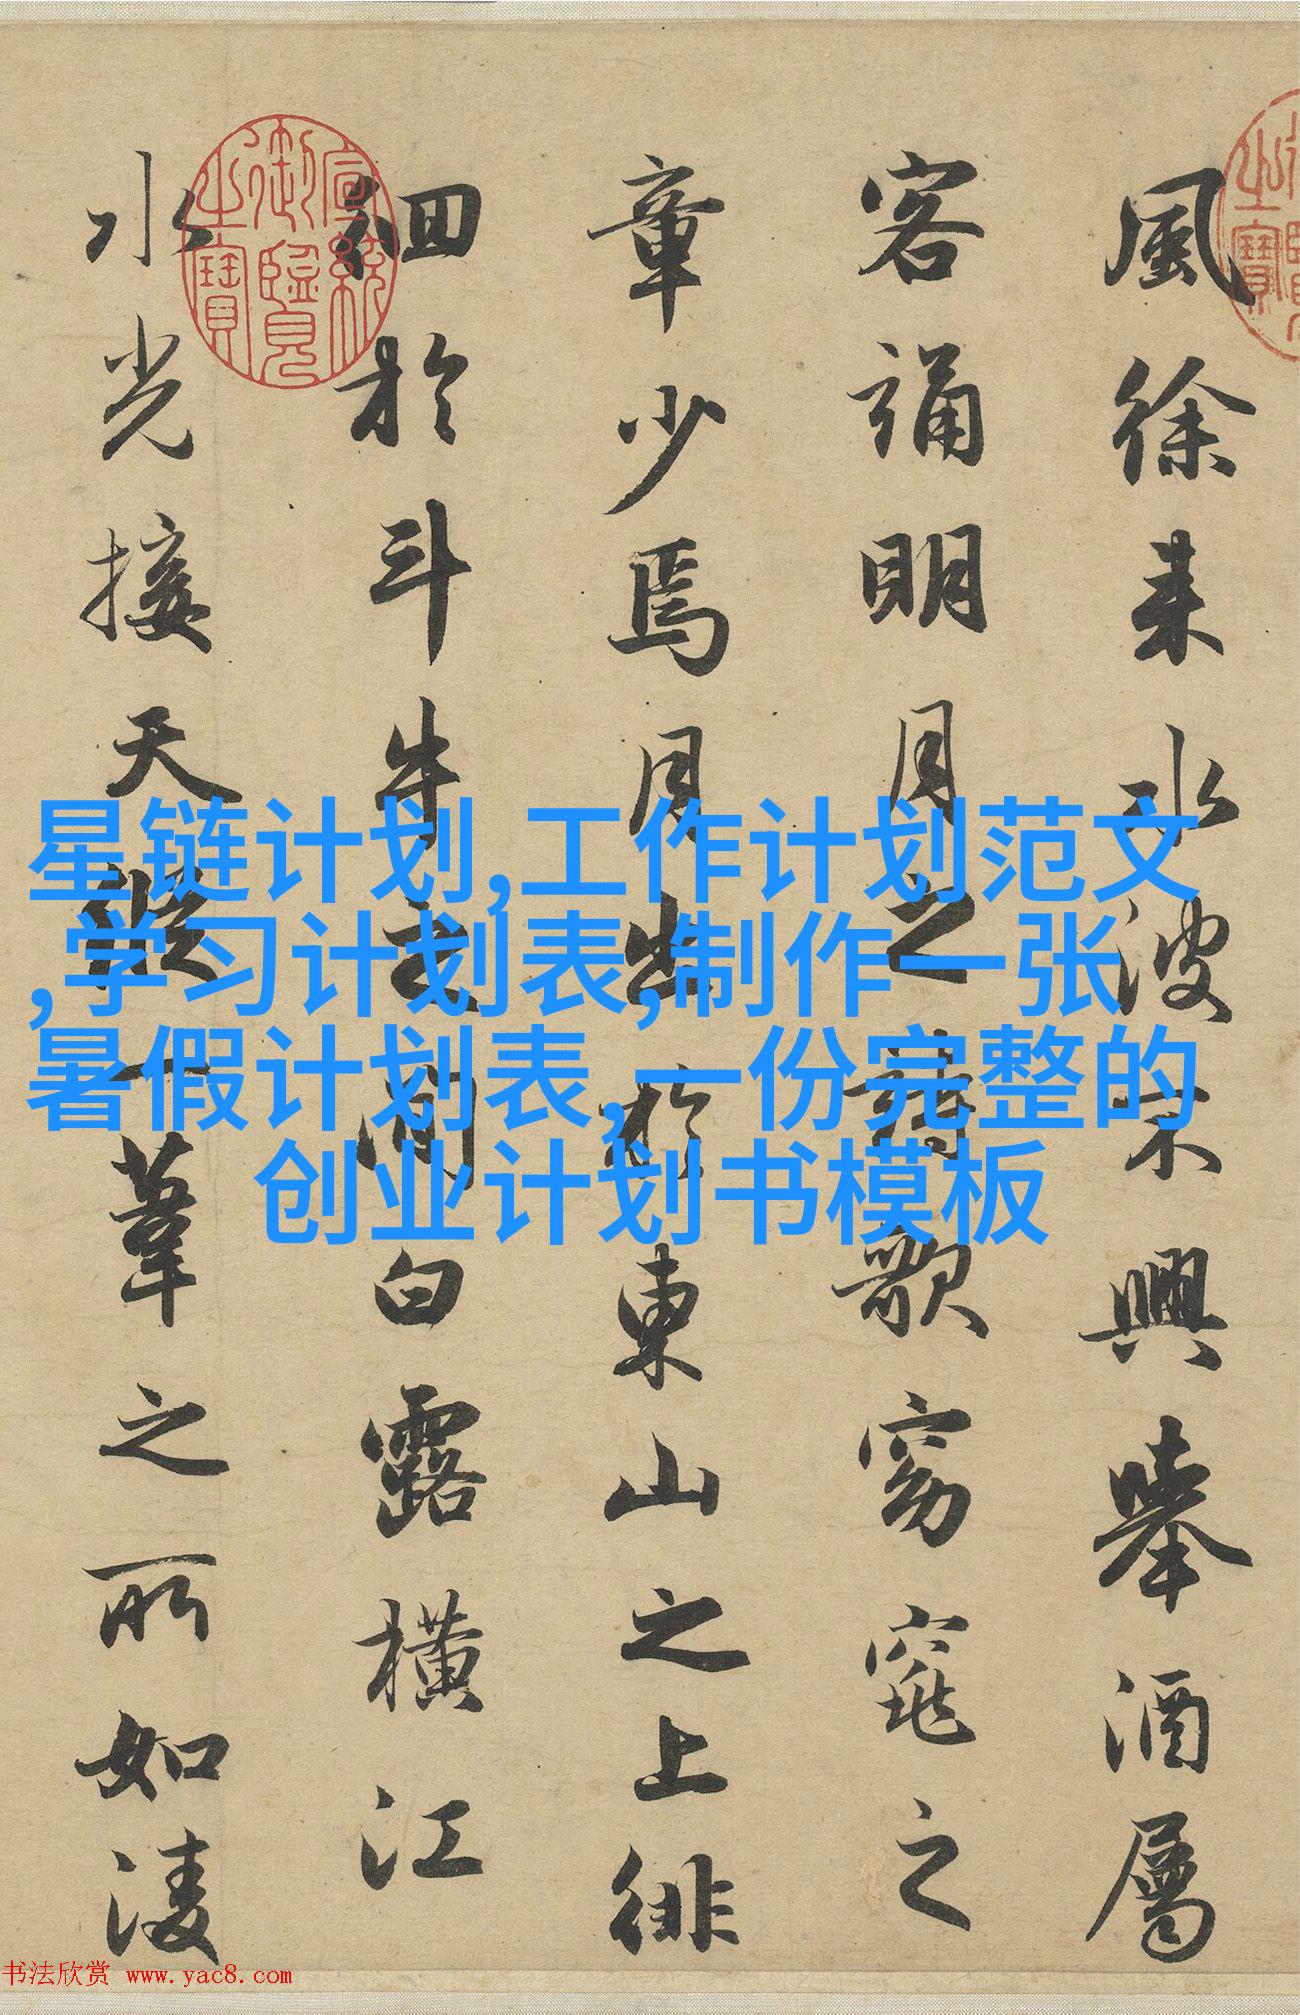 風徐来水波不興舉酒屬
客誦明月之詩歌窈窕之
章少焉月出於東山之上徘
徊於斗牛之間白露橫江
水光接天縱一葦之所如淩
宣統御覽之寶
星链计划,工作计划范文
,学习计划表,制作一张
暑假计划表,一份完整的
创业计划书模板
书法欣赏 www.yac8.com